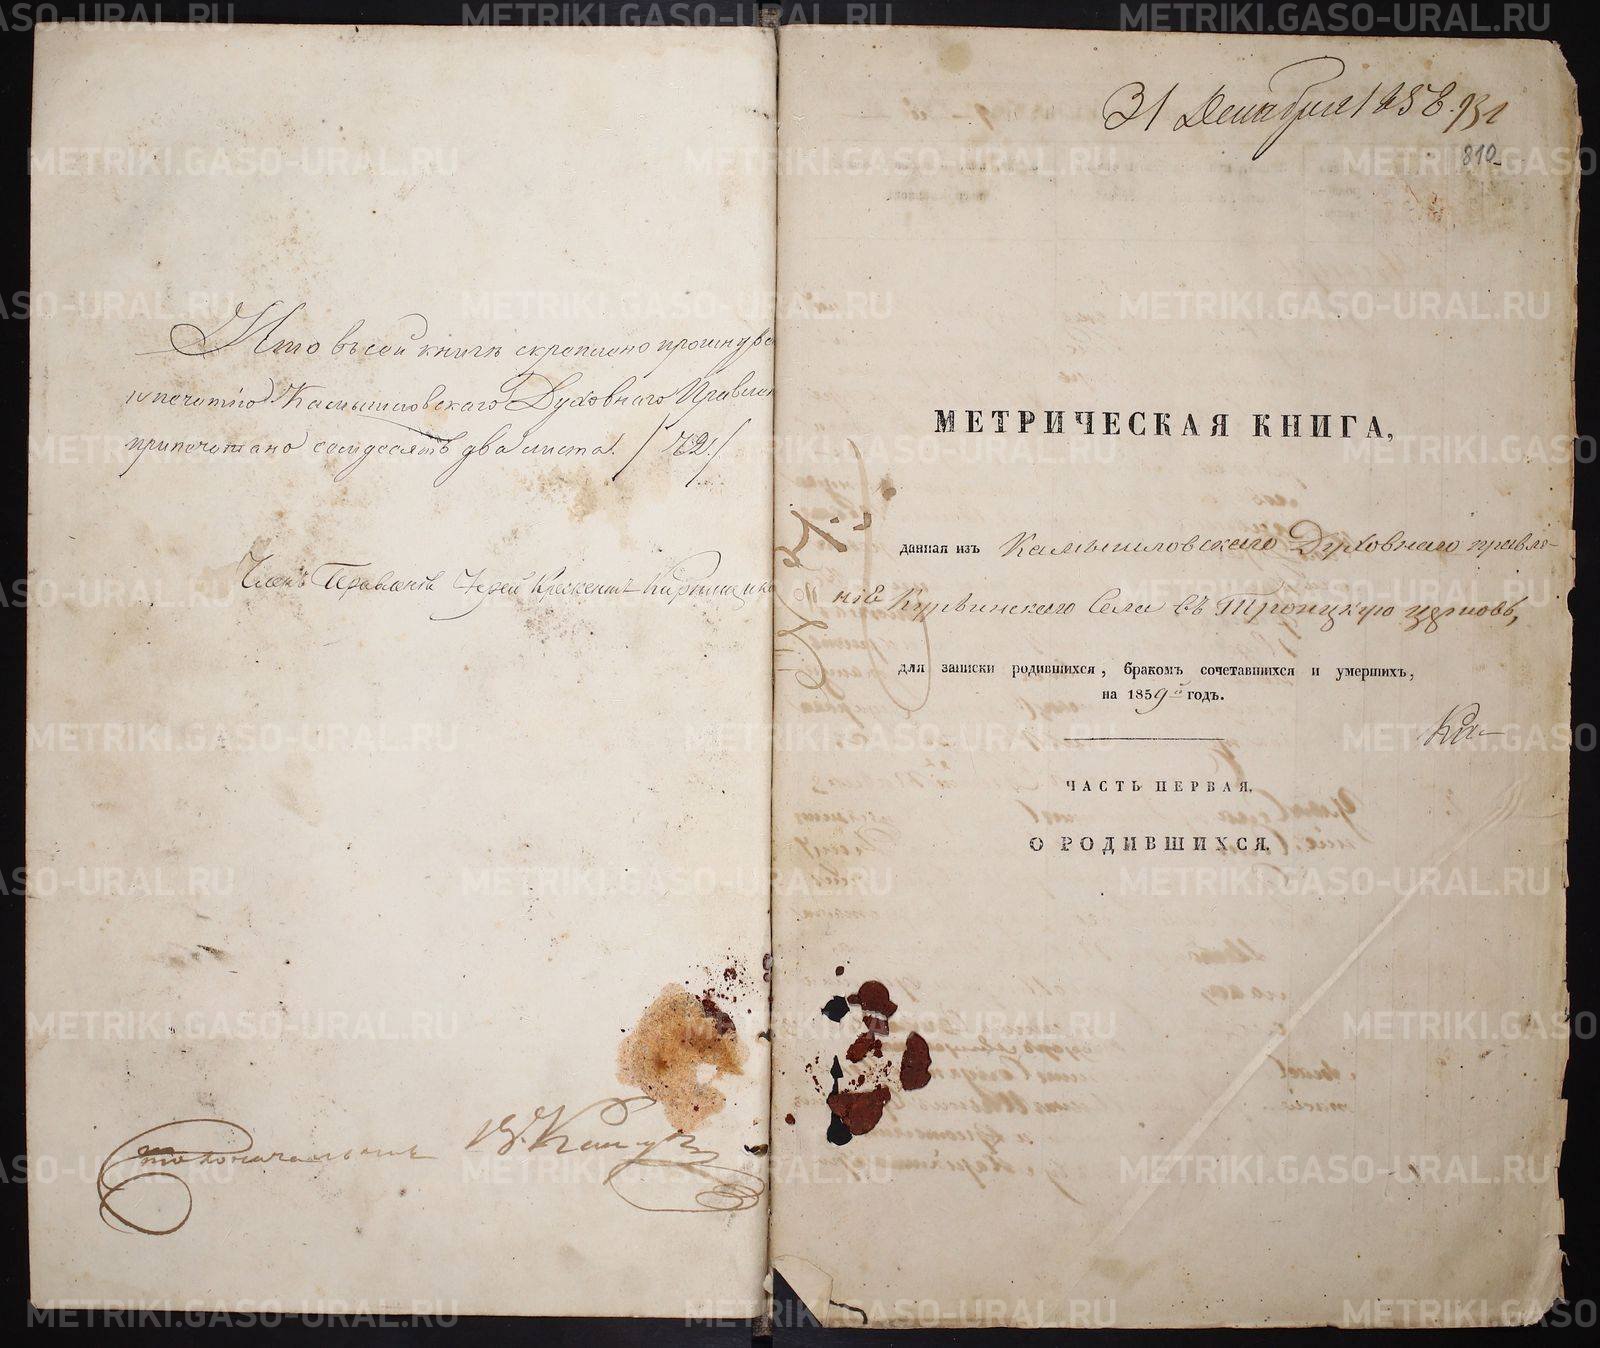 Что в сей книгѣ скрѣплено прошнуро
и печатію Камышловскаго Духовнаго Правлен
припечатано семдесятъ два листа. /72/
Членъ Правленія Іерей
Столоначальникъ
31 Декабря 1858.
810
МЕТРИЧЕСКАЯ КНИГА,
данная изъ Камышловскаго Духовнаго правле-
нія Курьинскаго Села въ Троицкую церковь,
для записки родившихся, бракомъ сочетавшихся и умершихъ,
на 1859й годъ.
ЧАСТЬ ПЕРВАЯ.
О РОДИВШИХСЯ.
METRIKI.GASO-URAL.RU